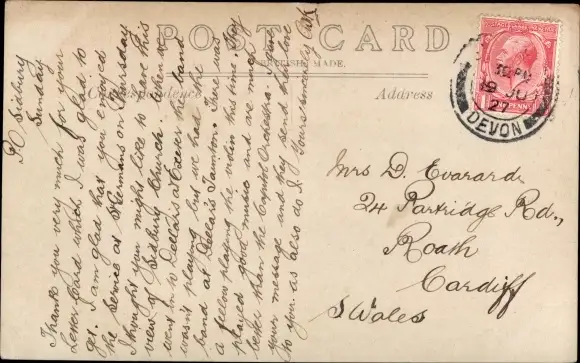 POST CARD
BRITISH MADE.
Correspondence
Address
PENNY
PM
19 JU
27
DEVON
Sidbury
Sunday
Thank you very much for your
Letter Card which I was glad to
get. I am glad that you enjoyed
the service at St Germans on Thursday
I thought you might like to have this
view of Sidbury Church. When we
went in to Deller's at Exeter the band
wasn't playing but we had the
band at Deller's Taunton. There was
a fellow playing the violin this time. They
played good music and are much
better than the Capitol Orchestra. I gave
your message and they send their love
to you. as also do I. Yours sincerely
Mrs D. Evarard.
24 Partridge Rd.,
Roath
Cardiff
S Wales